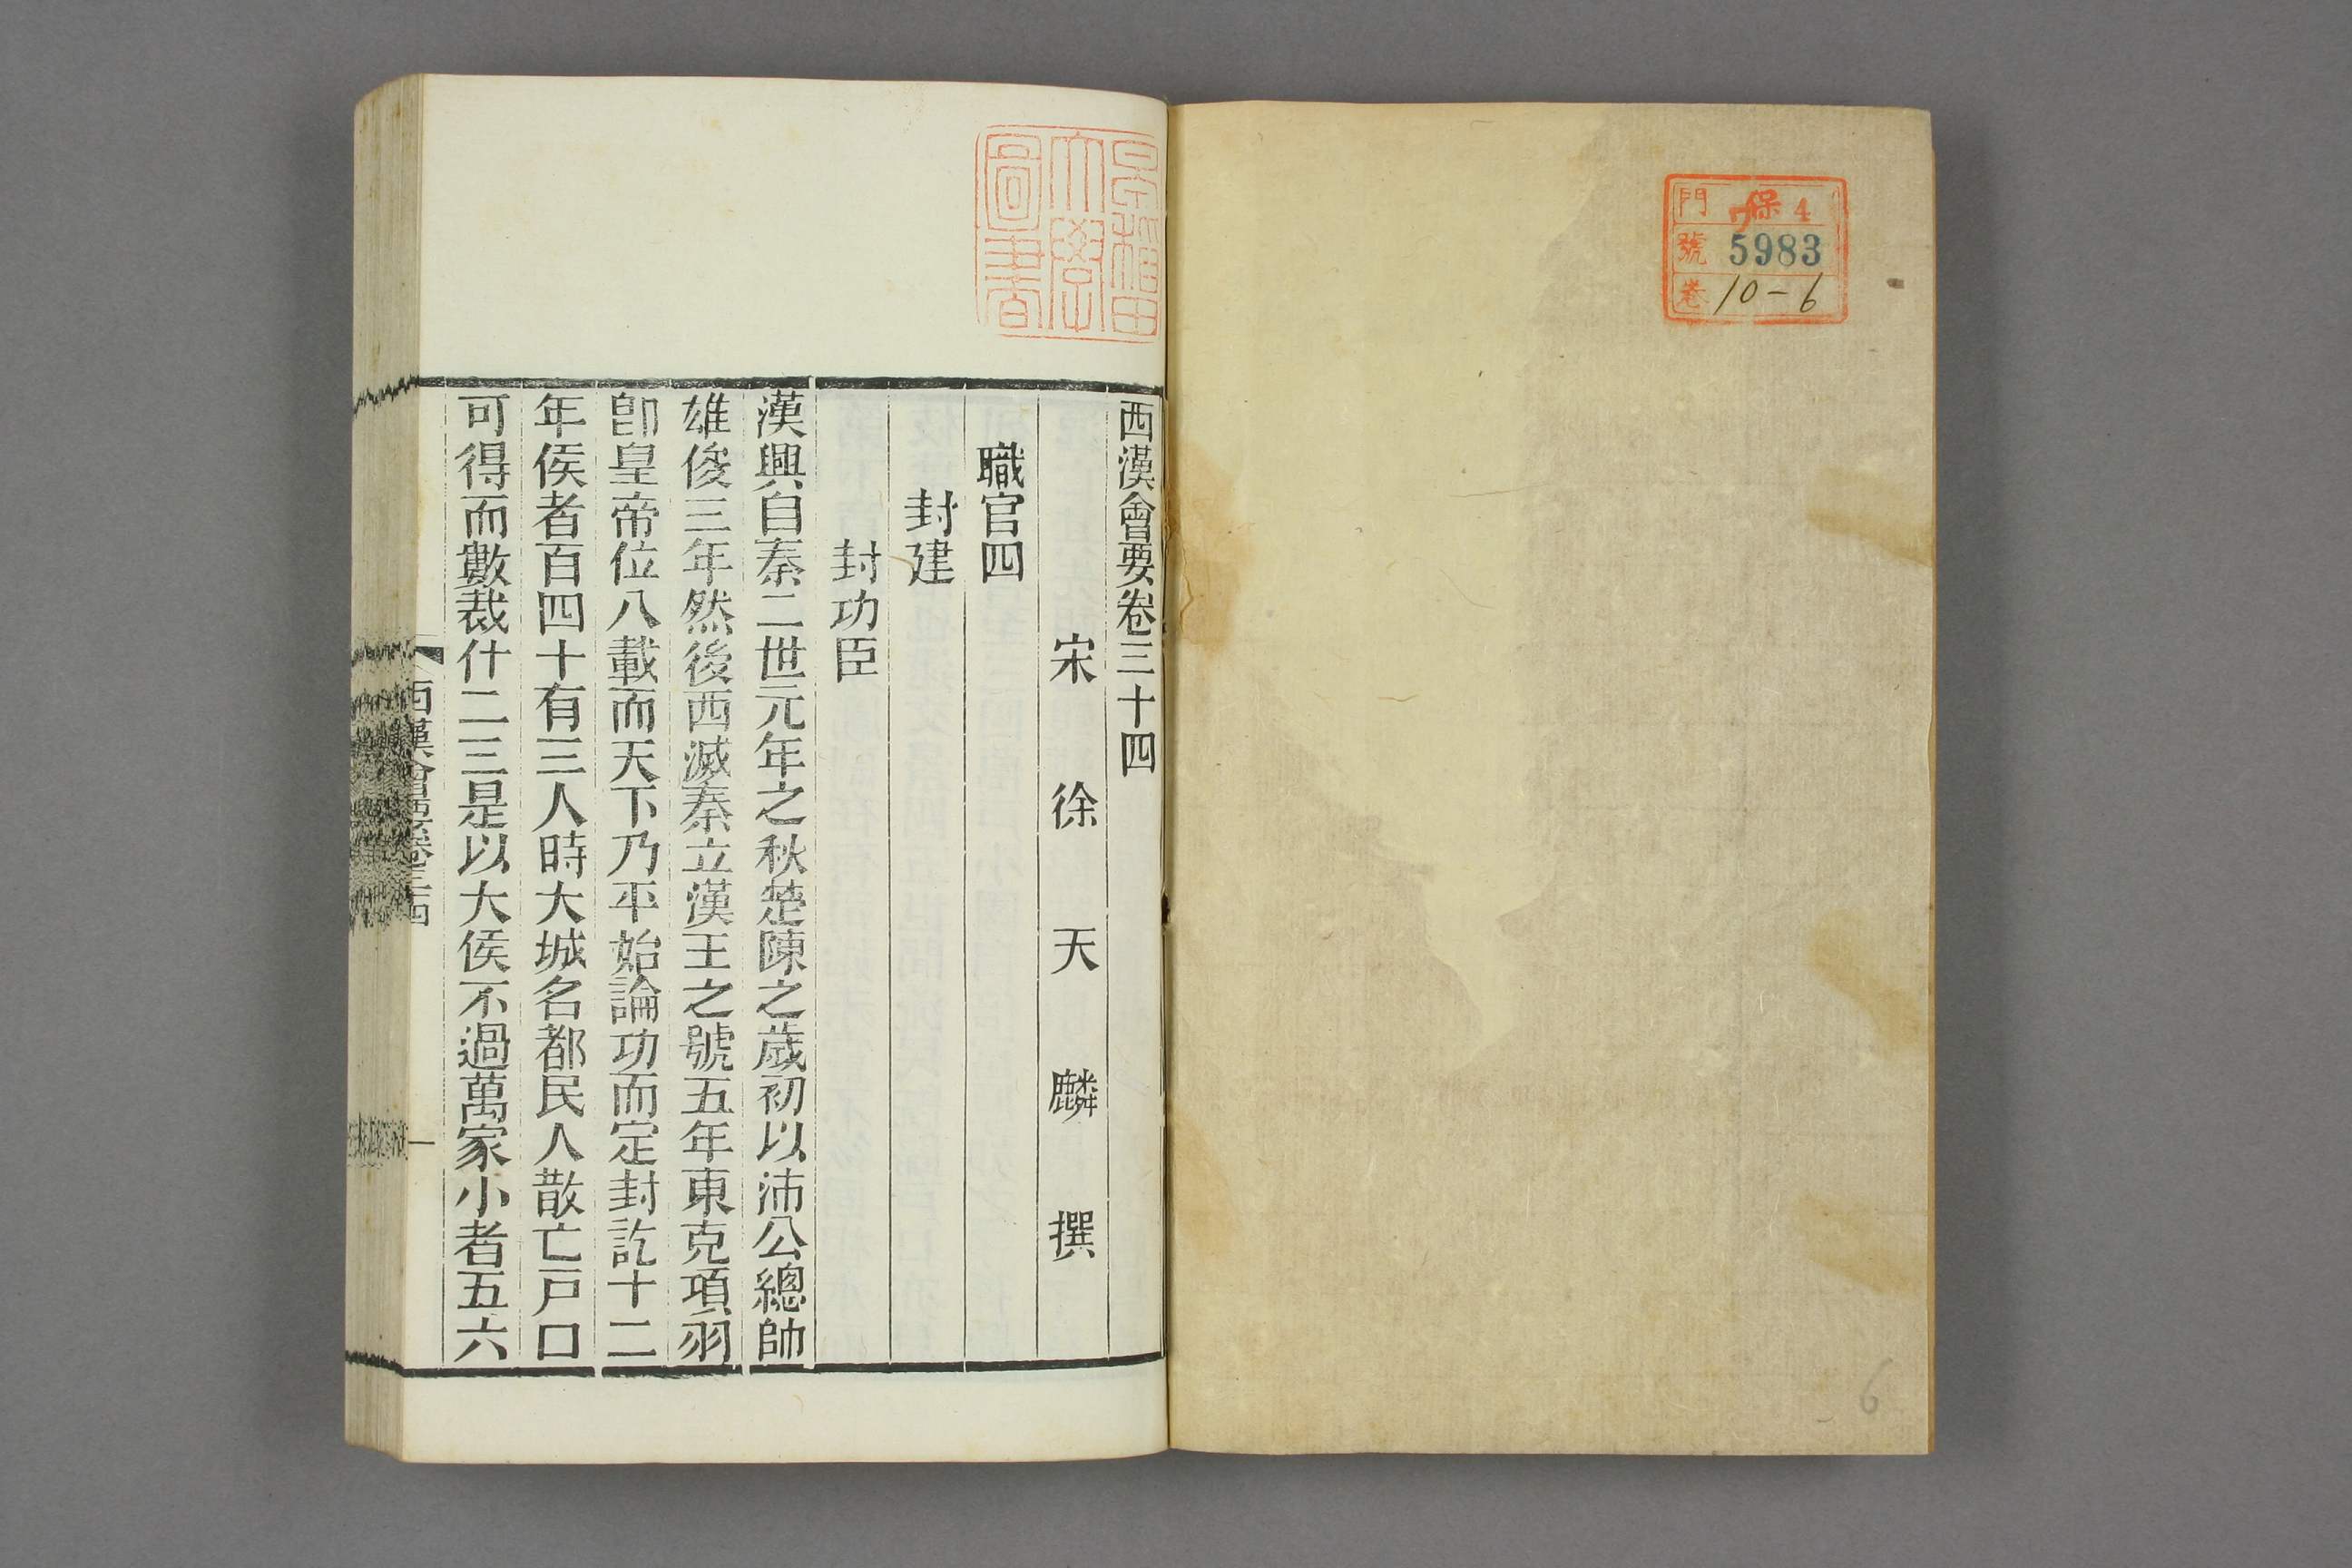 門 保 ワ 4
號 5983
卷 10-6
6
早稲田
大學
圖書
西漢會要卷三十四
宋 徐 天 麟 撰
職官四
封建
封功臣
漢興自秦二世元年之秋楚陳之歲初以沛公總帥
雄俊三年然後西滅秦立漢王之號五年東克項羽
卽皇帝位八載而天下乃平始論功而定封訖十二
年侯者百四十有三人時大城名都民人散亡戸口
可得而數裁什二三是以大侯不過萬家小者五六
西漢會要卷三十四
一